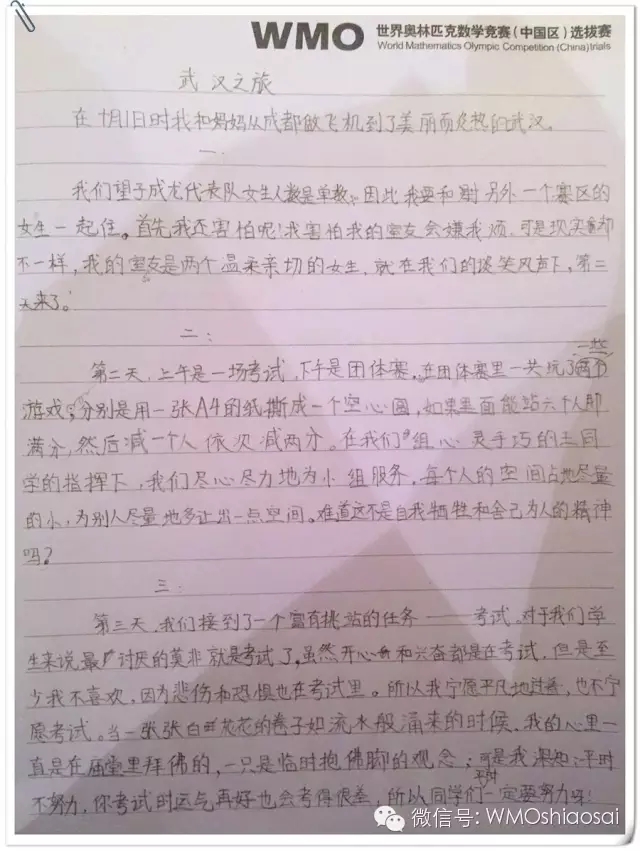 WMO 世界奥林匹克数学竞赛（中国区）选拔赛
World Mathematics Olympic Competition (China) trials
武汉之旅
在7月1日时我和妈妈从成都做飞机到了美丽而炎热的武汉。
一:
我们望子成龙代表队女生人数是单数,因此我要和 另外一个赛区的
女生一起住。首先我还害怕呢!我害怕我的室友会嫌我烦,可是现实 却
不一样,我的室友是两个温柔亲切的女生,就在我们的谈笑风声下,第二
天来了。
二:
一些
第二天,上午是一场考试,下午是团体赛,在团体赛里一共玩了两个
游戏,分别是用一张A4的纸撕成一个空心圆,如果里面能站六个人即
满分,然后减一个人依次减两分。在我们组心灵手巧的王同
学的指挥下,我们尽心尽力地为小组服务,每个人的空间占地尽量
的小,为别人尽量地多让出一点空间。难道这不是自我牺牲和舍己为人的精神
吗?
三:
第三天,我们接到了一个富有挑战的任务——考试,对于我们学
生来说最讨厌的莫非就是考试了,虽然开心和兴奋都是在考试,但是至
少我不喜欢,因为悲伤和恐惧也在考试里。所以我宁愿平凡地过着,也不宁
愿考试。当一张张白花花的卷子如流水般涌来的时候,我的心里一
直是在庙堂里拜佛的,一只是临时抱佛脚的观念;可是我深知:平时
不努力,你考试时运气再好也会考得很差,所以同学们平时一定要努力呀!
微信号: WMOshiaosai